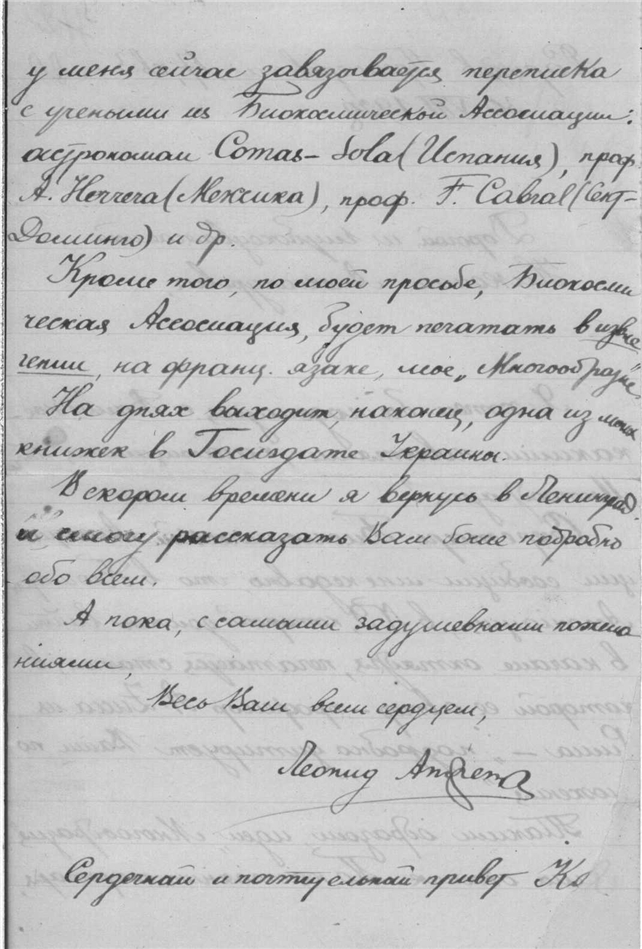 у меня сейчас завязывается переписка
с учеными из Биокосмической Ассоциации:
астрономом Comas-Sola (Испания), проф.
A. Herrera (Мексика), проф. F. Cabral (Сент-
Доминго) и др.
Кроме того, по моей просьбе, Биокосми
ческая Ассосиация, будет печатать в извле
чении, на франц. языке, мое „Многообразие"
На днях выходит, наконец, одна из моих
книжек в Госиздате Украины.
В скором времени я вернусь в Ленинград
и смогу рассказать Вам более подробно
обо всем.
А пока, с самыми задушевными пожела
ниями,
Весь Ваш всем сердцем,
Леонид Андренко
Сердечный и почтительный привет